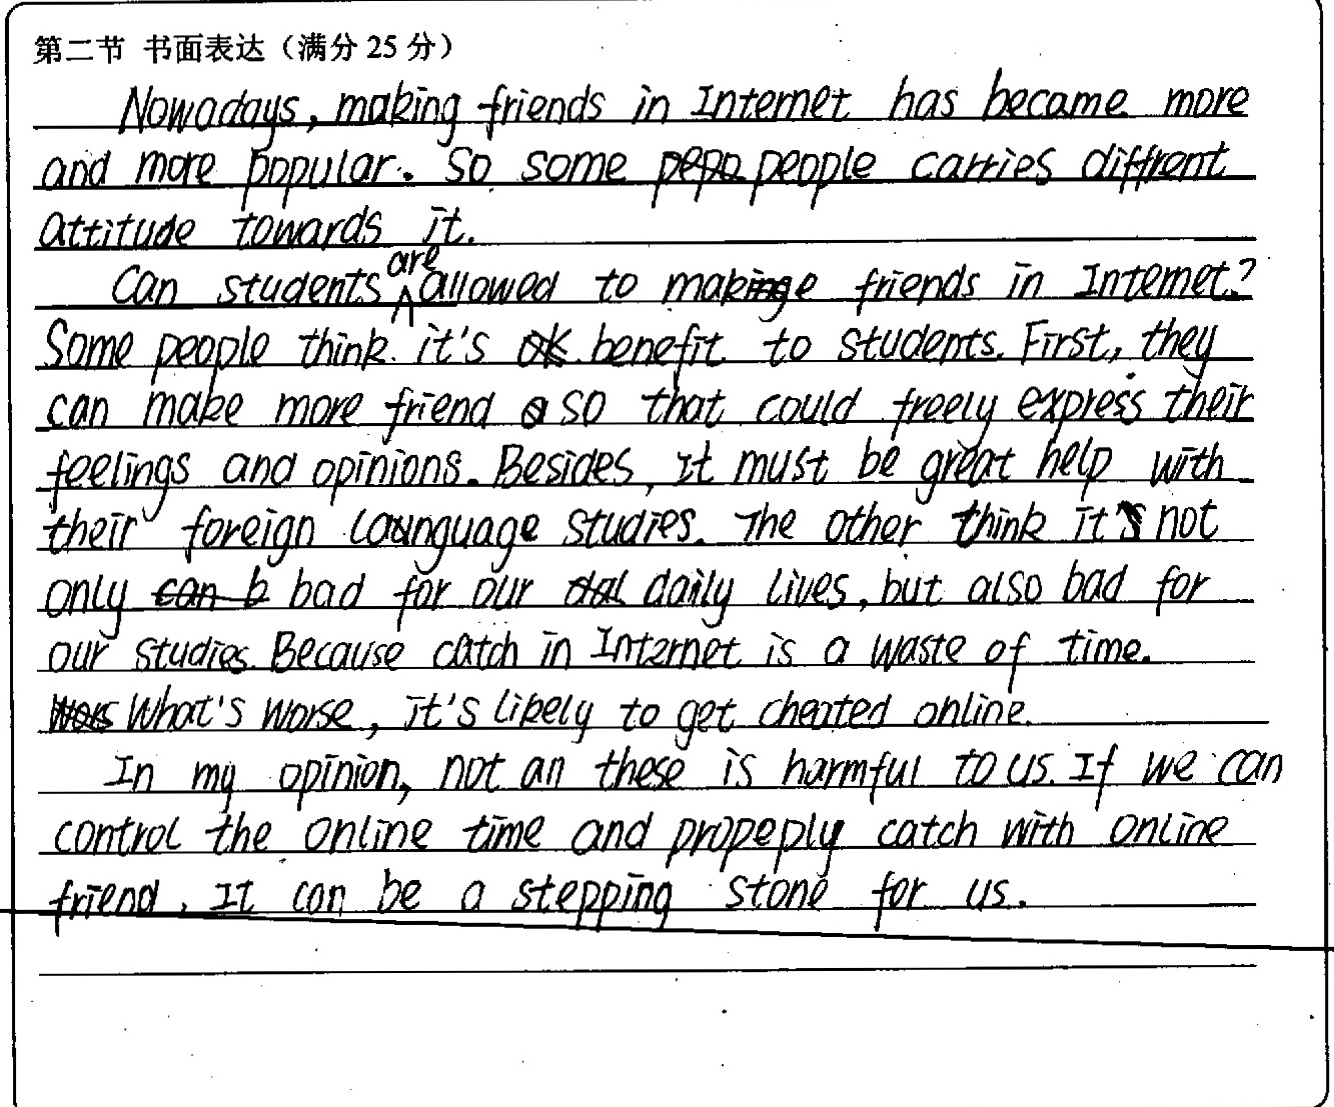 第二节 书面表达（满分 25 分）
Nowadays, making friends in Internet has became more
and more popular. So some people carries diffrent
attitude towards it.
Can students are allowed to make friends in Internet?
Some people think it's benefit to students. First, they
can make more friend so that could freely express their
feelings and opinions. Besides, it must be great help with
their foreign language studies. The other think it's not
only bad for our daily lives, but also bad for
our studies. Because catch in Internet is a waste of time.
What's worse, it's likely to get cheated online.
In my opinion, not an these is harmful to us. If we can
control the online time and propeply catch with online
friend. It can be a stepping stone for us.